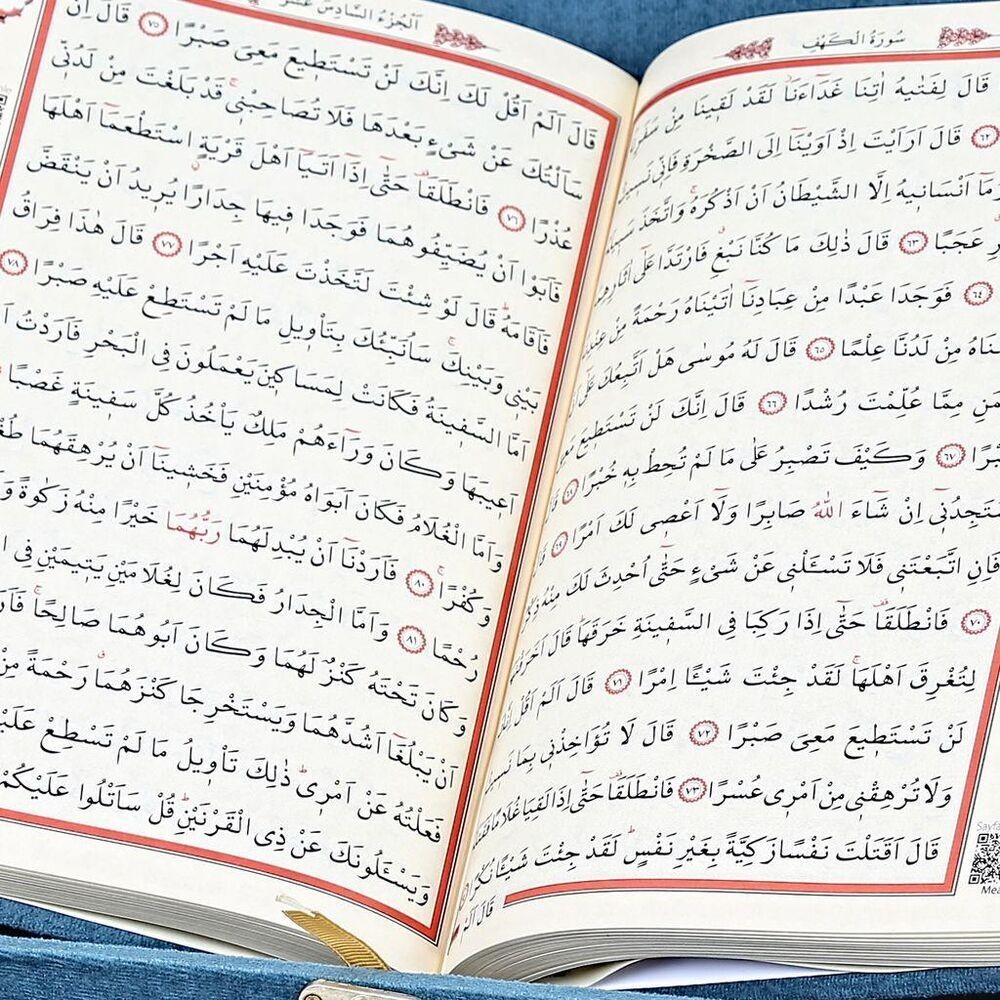 سُورَةُ الْكَهْفِ
قَالَ لِفَتٰيهُ اٰتِنَا غَدَٓاءَنَاۘ لَقَدْ لَقٖينَا مِنْ
﴿٦٢﴾ قَالَ اَرَاَيْتَ اِذْ اَوَيْنَٓا اِلَى الصَّخْرَةِ فَاِنّٖى
وَمَٓا اَنْسَانٖيهُ اِلَّا الشَّيْطَانُ اَنْ اَذْكُرَهُۚ وَاتَّخَذَ
عَجَبًا ﴿٦٣﴾ قَالَ ذٰلِكَ مَا كُنَّا نَبْغِۗ فَارْتَدَّا عَلٰٓى اٰثَارِهِمَا
﴿٦٤﴾ فَوَجَدَا عَبْدًا مِنْ عِبَادِنَٓا اٰتَيْنَاهُ رَحْمَةً مِنْ
مِنْ لَدُنَّا عِلْمًا ﴿٦٥﴾ قَالَ لَهُ مُوسٰى هَلْ اَتَّبِعُكَ عَلٰٓى
مِمَّا عُلِّمْتَ رُشْدًا ﴿٦٦﴾ قَالَ اِنَّكَ لَنْ تَسْتَطٖيعَ مَعِىَ
﴿٦٧﴾ وَكَيْفَ تَصْبِرُ عَلٰى مَا لَمْ تُحِطْ بِهٖ خُبْرًا ﴿٦٨﴾
سَتَجِدُنٖٓى اِنْ شَٓاءَ اللّٰهُ صَابِرًا وَلَٓا اَعْصٖى لَكَ اَمْرًا ﴿٦٩﴾
فَاِنِ اتَّبَعْتَنٖى فَلَا تَسْـَٔلْنٖى عَنْ شَىْءٍ حَتّٰٓى اُحْدِثَ لَكَ مِنْهُ
﴿٧٠﴾ فَانْطَلَقَاۗ حَتّٰٓى اِذَا رَكِبَا فِى السَّفٖينَةِ خَرَقَهَاۜ قَالَ
لِتُغْرِقَ اَهْلَهَاۚ لَقَدْ جِئْتَ شَيْـًٔا اِمْرًا ﴿٧١﴾ قَالَ اَلَمْ اَقُلْ
لَنْ تَسْتَطٖيعَ مَعِىَ صَبْرًا ﴿٧٢﴾ قَالَ لَا تُؤَاخِذْنٖى بِمَا
وَلَا تُرْهِقْنٖى مِنْ اَمْرٖى عُسْرًا ﴿٧٣﴾ فَانْطَلَقَاۗ حَتّٰٓى اِذَا لَقِيَا غُلَامًا
قَالَ اَقَتَلْتَ نَفْسًا زَكِيَّةً بِغَيْرِ نَفْسٍۜ لَقَدْ جِئْتَ شَيْـًٔا نُكْرًا
قَالَ اَلَمْ
اَلْجُزْءُ السَّادِسَ عَشَرَ
قَالَ اَلَمْ اَقُلْ لَكَ اِنَّكَ لَنْ تَسْتَطٖيعَ مَعِىَ صَبْرًا ﴿٧٥﴾ قَالَ اِنْ
سَاَلْتُكَ عَنْ شَىْءٍ بَعْدَهَا فَلَا تُصَاحِبْنٖىۚ قَدْ بَلَغْتَ مِنْ لَدُنّٖى
عُذْرًا ﴿٧٦﴾ فَانْطَلَقَاۗ حَتّٰٓى اِذَٓا اَتَيَٓا اَهْلَ قَرْيَةٍۨ اسْتَطْعَمَٓا اَهْلَهَا
فَاَبَوْا اَنْ يُضَيِّفُوهُمَا فَوَجَدَا فٖيهَا جِدَارًا يُرٖيدُ اَنْ يَنْقَضَّ
فَاَقَامَهُۜ قَالَ لَوْ شِئْتَ لَتَّخَذْتَ عَلَيْهِ اَجْرًا ﴿٧٧﴾ قَالَ هٰذَا فِرَاقُ
بَيْنٖى وَبَيْنِكَۚ سَاُنَبِّئُكَ بِتَأْوٖيلِ مَا لَمْ تَسْتَطِعْ عَلَيْهِ صَبْرًا ﴿٧٨﴾
اَمَّا السَّفٖينَةُ فَكَانَتْ لِمَسَاكٖينَ يَعْمَلُونَ فِى الْبَحْرِ فَاَرَدْتُ
اَعٖيبَهَا وَكَانَ وَرَٓاءَهُمْ مَلِكٌ يَأْخُذُ كُلَّ سَفٖينَةٍ غَصْبًا
وَاَمَّا الْغُلَامُ فَكَانَ اَبَوَاهُ مُؤْمِنَيْنِ فَخَشٖينَٓا اَنْ يُرْهِقَهُمَا
وَكُفْرًاۚ ﴿٨٠﴾ فَاَرَدْنَٓا اَنْ يُبْدِلَهُمَا رَبُّهُمَا خَيْرًا مِنْهُ زَكٰوةً
رُحْمًا ﴿٨١﴾ وَاَمَّا الْجِدَارُ فَكَانَ لِغُلَامَيْنِ يَتٖيمَيْنِ فِى
وَكَانَ تَحْتَهُ كَنْزٌ لَهُمَا وَكَانَ اَبُوهُمَا صَالِحًاۚ
اَنْ يَبْلُغَٓا اَشُدَّهُمَا وَيَسْتَخْرِجَا كَنْزَهُمَاۗ رَحْمَةً مِنْ
فَعَلْتُهُ عَنْ اَمْرٖىۜ ذٰلِكَ تَأْوٖيلُ مَا لَمْ تَسْطِعْ
وَيَسْـَٔلُونَكَ عَنْ ذِى الْقَرْنَيْنِۜ قُلْ سَاَتْلُوا عَلَيْكُمْ